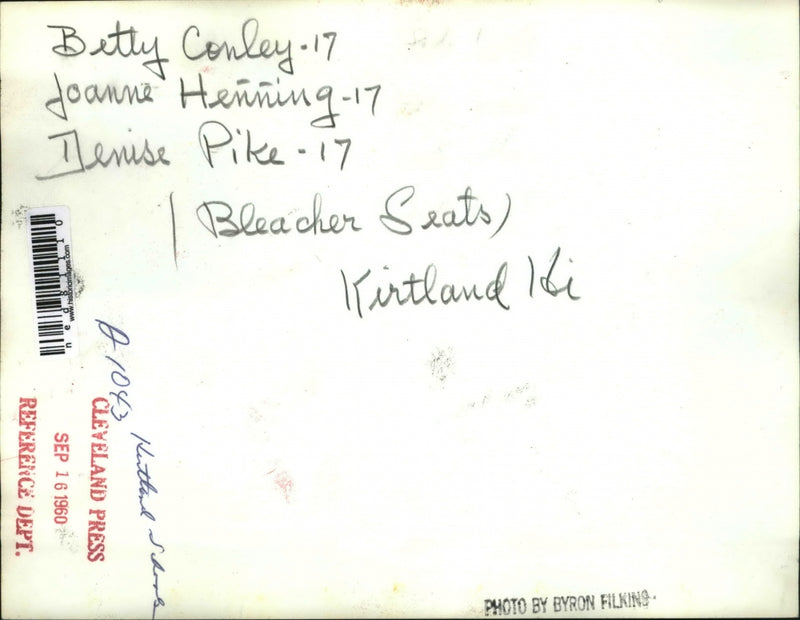 Betty Conley - 17
Joanne Henning - 17
Denise Pike - 17
(Bleacher Seats)
Kirtland Hi
nedg11110
www.historicimages.com
A 1043 Kirtland Schools
CLEVELAND PRESS
SEP 16 1960
REFERENCE DEPT.
PHOTO BY BYRON FILKINS